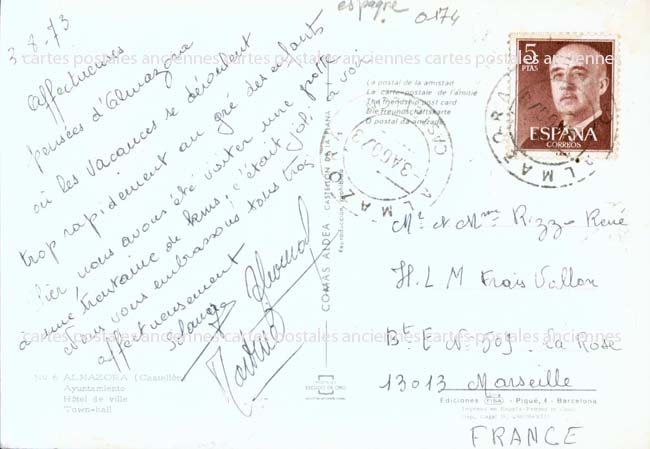 espagne 0174
3-8-73
Affectueuses
pensées d'Almazora
où les vacances se déroulent
trop rapidement au gré des enfants
hier nous avons été visiter une grotte
à une trentaine de kms; c'était joli à voir
Nous vous embrassons tous très
affectueusement
cartes postales anciennes cartes postales anciennes cartes postales anciennes
cartes postales anciennes cartes postales anciennes cartes postales anciennes
No 6 ALMAZORA (Castellón)
Ayuntamiento
Hôtel de ville
Town-hall
COMAS ALDEA CASTELLON DE LA PLANA
Reproducción prohibida
La postal de la amistad
La carte-postale de l'amitié
The friendship post card
Die Freundschaftskarte
O postal da amizade
15
PTAS
ESPAÑA
CORREOS
ALMAZORA
3 AGO 73
Mr et Mme Rizzo René
H.L.M Frais Vallon
Bt E No 509. La Rose
13013 Marseille
FRANCE
Ediciones FISA - Piqué, 4 - Barcelona